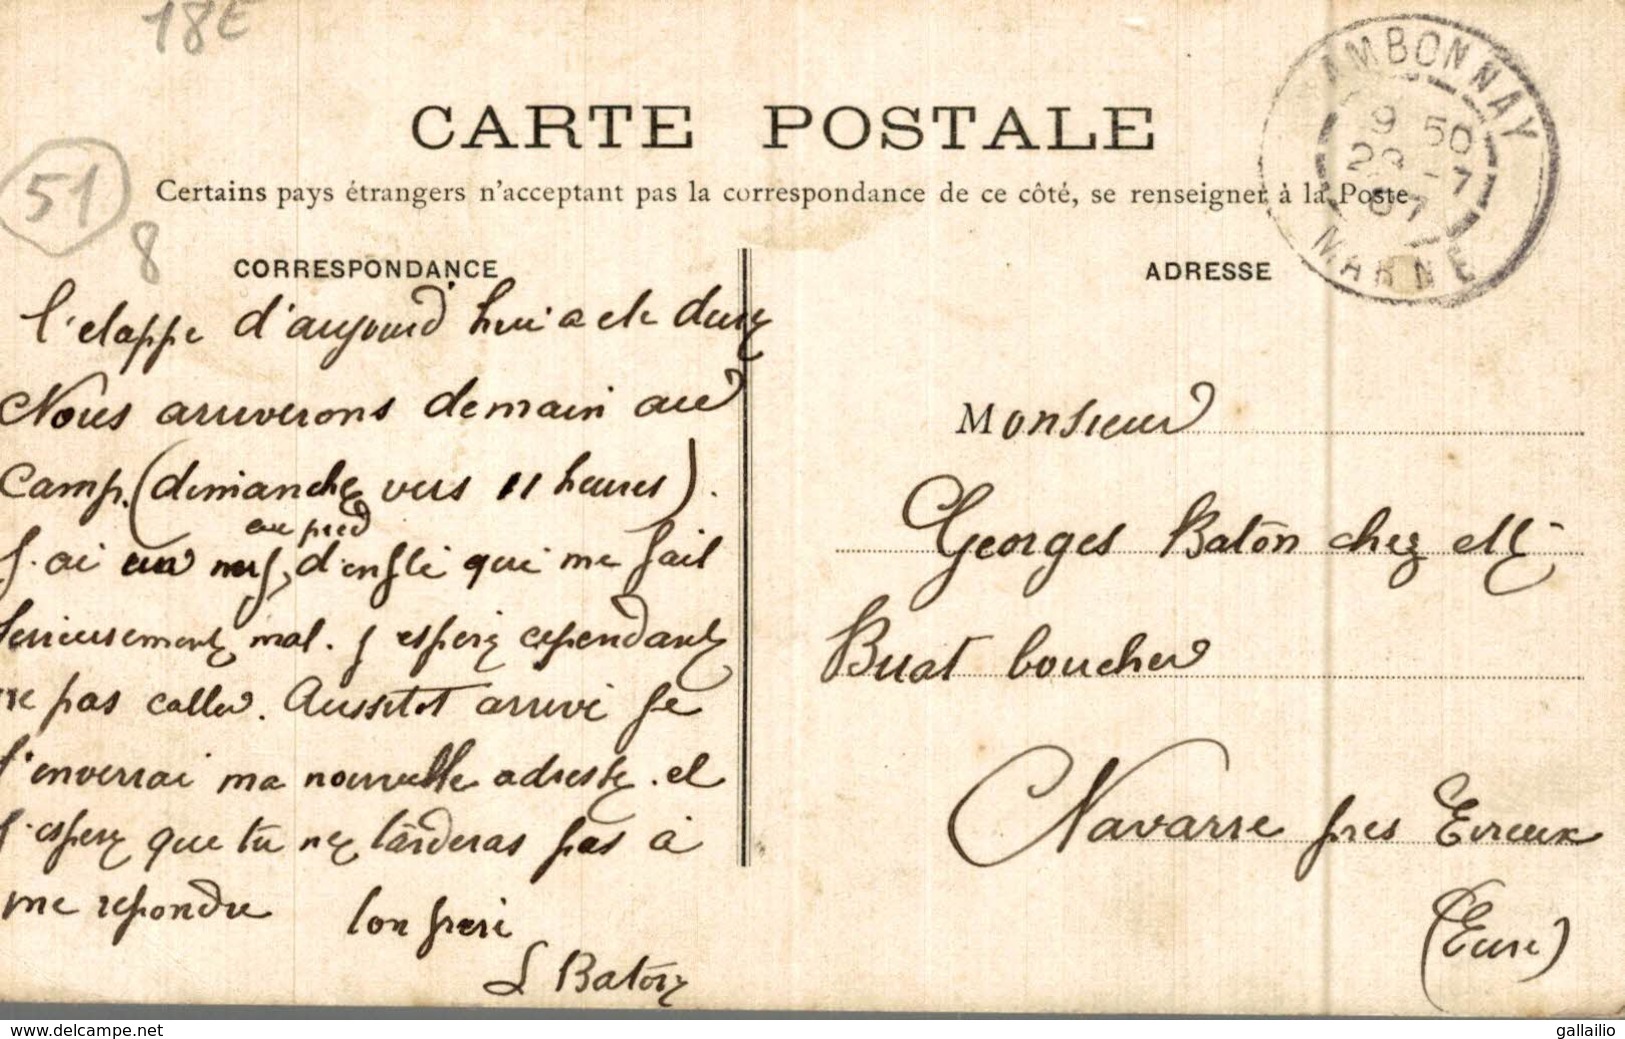 18E
51
8
CARTE POSTALE
Certains pays étrangers n'acceptant pas la correspondance de ce côté, se renseigner à la Poste
AMBONNAY
9 50
23 -7
07
MARNE
CORRESPONDANCE
l'etappe d'aujourd hui a ete dure
Nous arriverons demain au
Camp. (dimanche vers 11 heures).
au pied
J.ai un nerf, d'enfle qui me fait
serieusement mal. j espere cependant
ne pas caller. Aussitot arrivé je
t'enverrai ma nouvelle adresse. et
j'espere que tu ne tarderas pas à
me repondre
ton frere
L Baton
ADRESSE
Monsieur
Georges Baton chez M
Buat boucher
Navarre pres Evreux
(Eure)
www.delcampe.net
gallailio